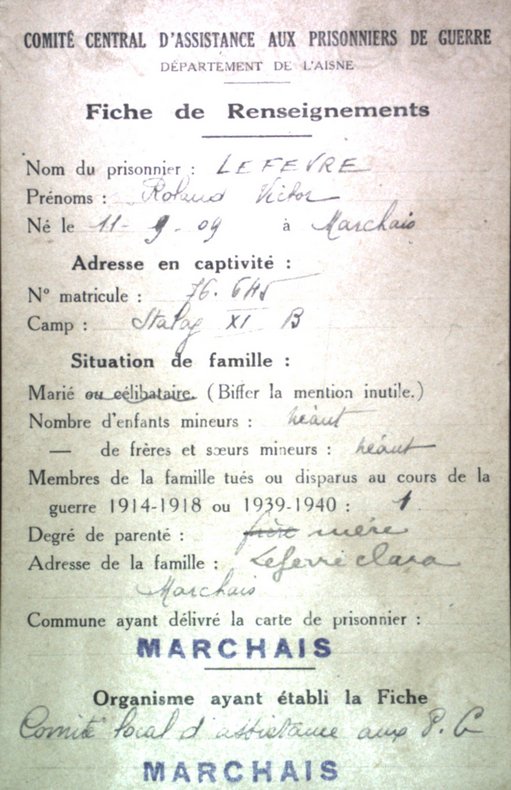 COMITÉ CENTRAL D'ASSISTANCE AUX PRISONNIERS DE GUERRE
DÉPARTEMENT DE L'AISNE
Fiche de Renseignements
Nom du prisonnier : LEFEVRE
Prénoms : Roland Victor
Né le 11-9-09 à Marchais
Adresse en captivité :
N° matricule : 76.645
Camp : Stalag XI B
Situation de famille :
Marié ou célibataire. (Biffer la mention inutile.)
Nombre d'enfants mineurs : néant
— de frères et sœurs mineurs : néant
Membres de la famille tués ou disparus au cours de la
guerre 1914-1918 ou 1939-1940 : 1
Degré de parenté : frère mère
Adresse de la famille : Lefevre clara
Marchais
Commune ayant délivré la carte de prisonnier :
MARCHAIS
Organisme ayant établi la Fiche
Comité local d'assistance aux P. G
MARCHAIS